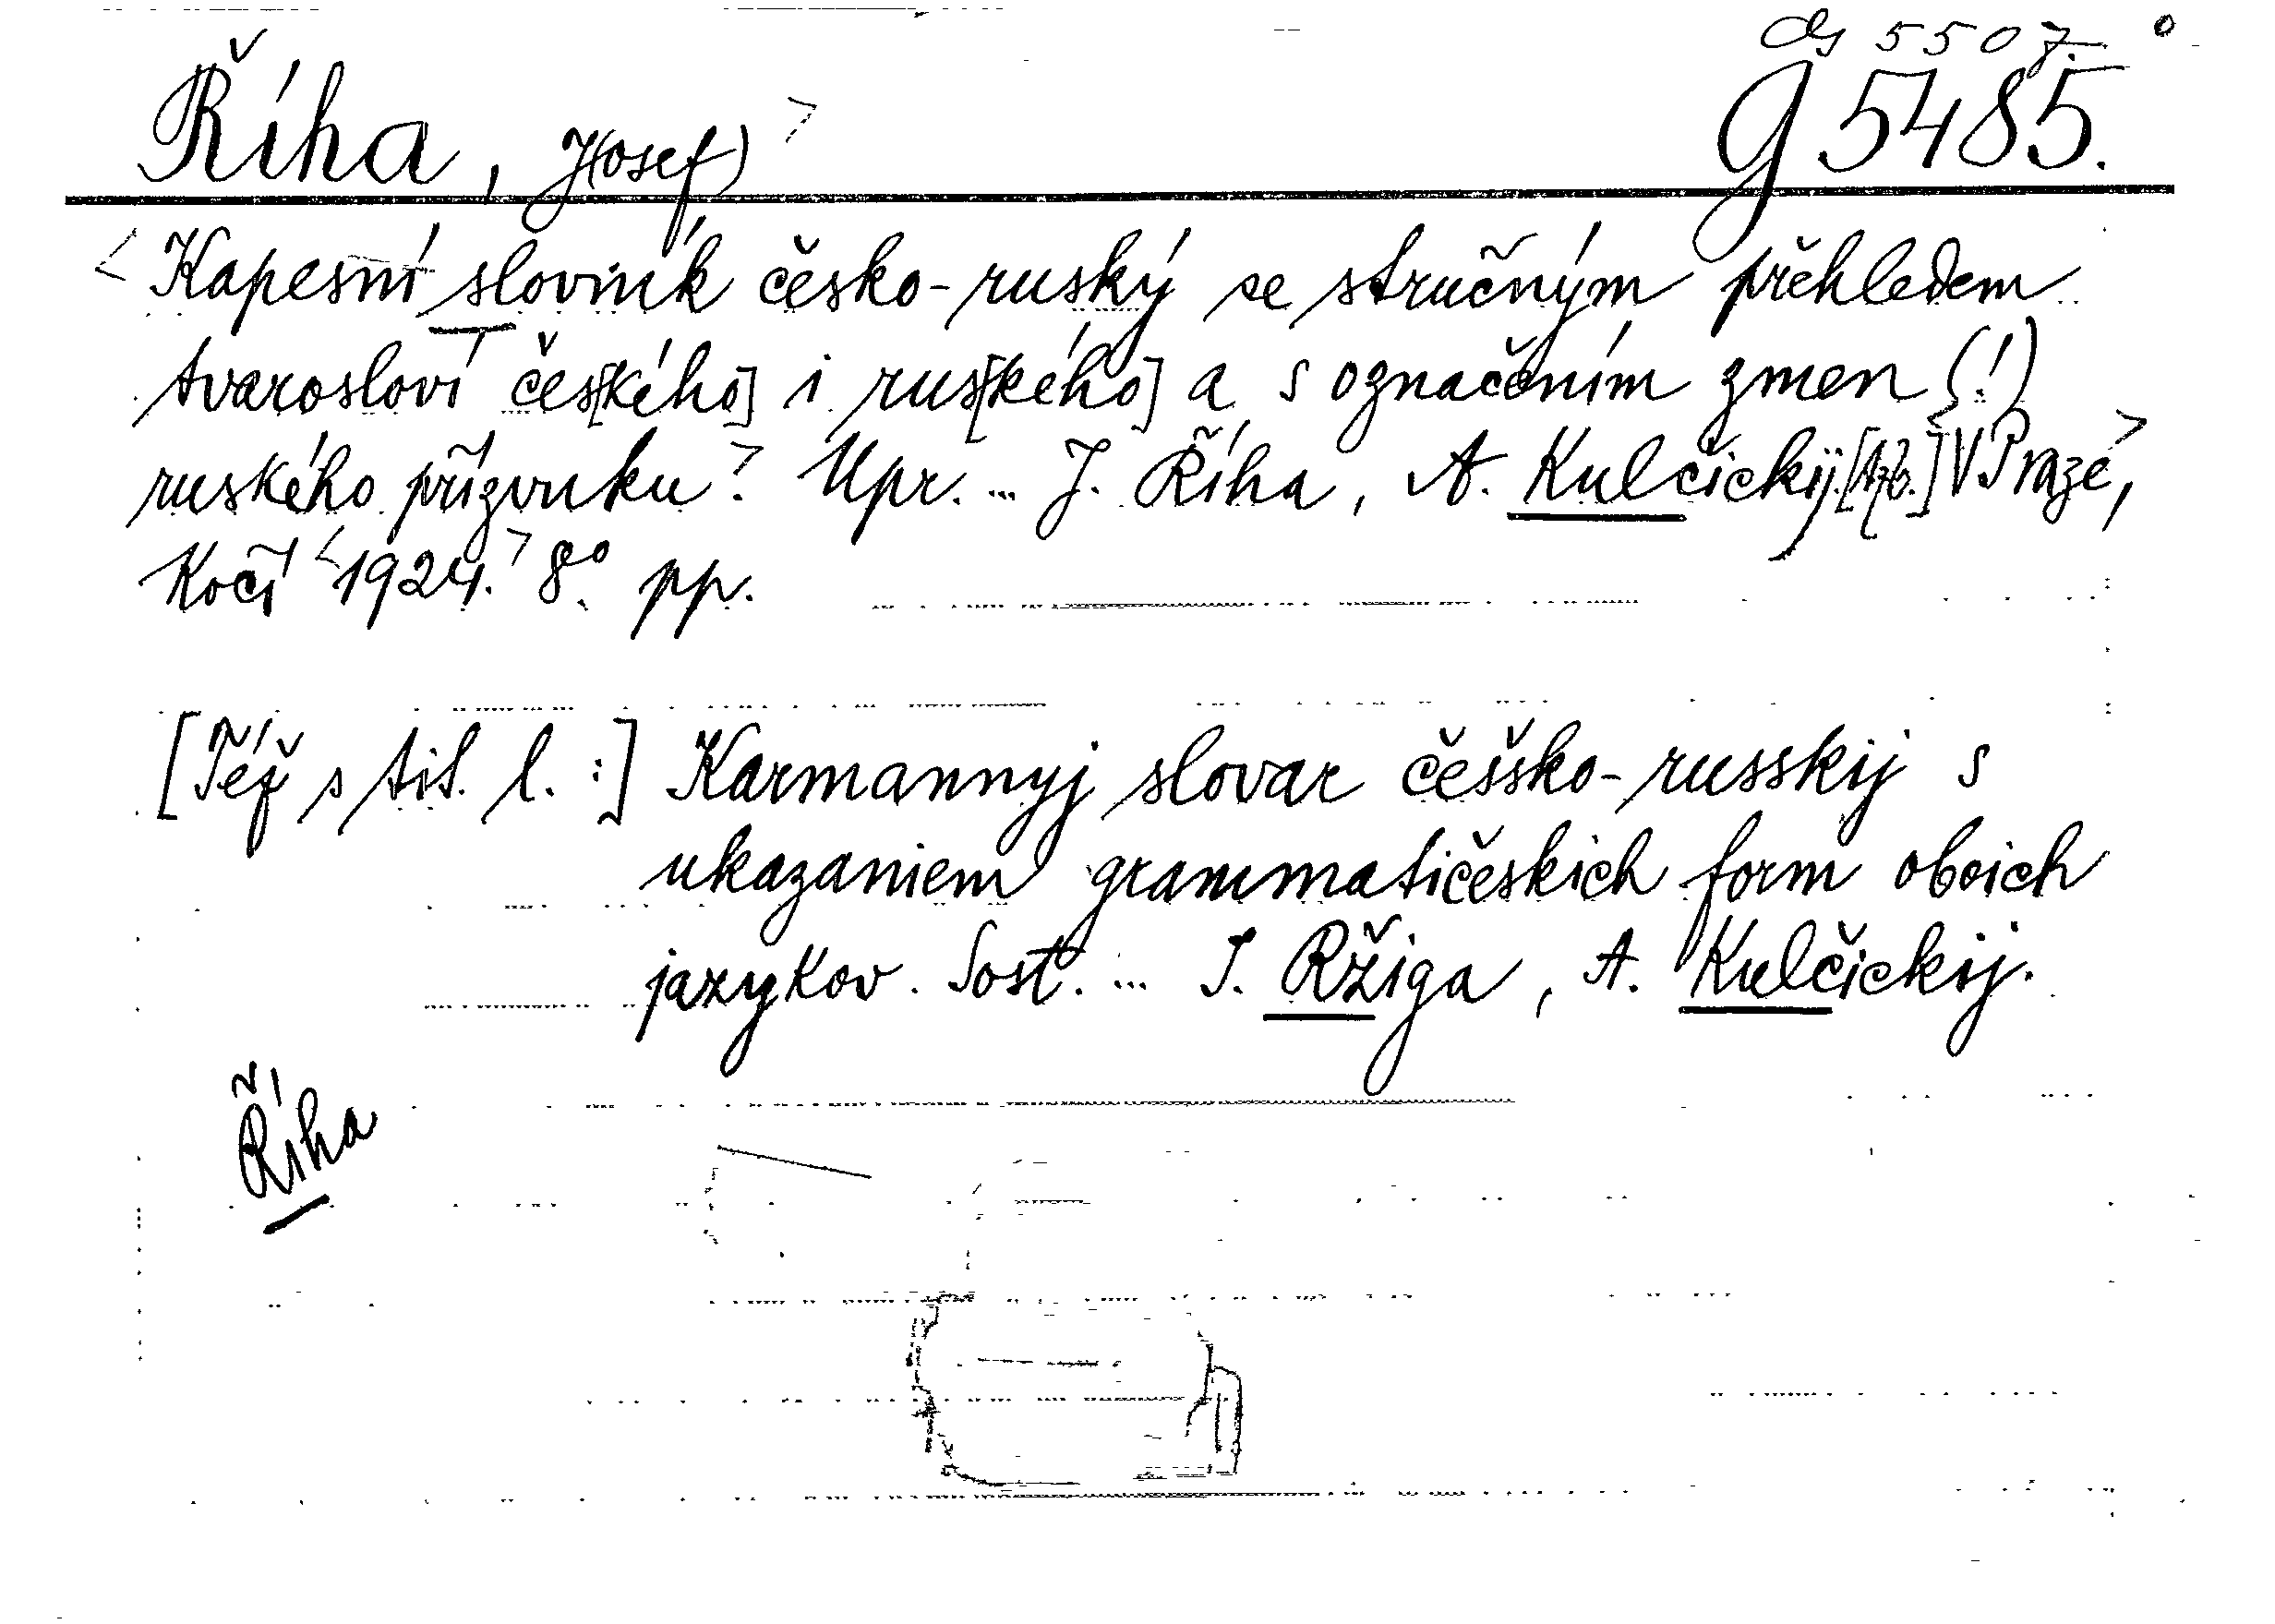 5507
Říha, J(osef)>
G 5485.
<Kapesní slovník česko-ruský se stručným přehledem
tvarosloví čes[kého] i rus[kého] a s označením zmen (!)
ruského přízvuku.> Upr. ... J. Říha, A. Kulčickij. <V Praze,>
Kočí <1924.> 8°. pp.
[Též s tit. l. :] Karmannyj slovar češsko-russkij s
ukazaniem grammatičeskich form oboich
jazykov. Sost. ... I. Ržiga, A. Kulčickij.
Říha